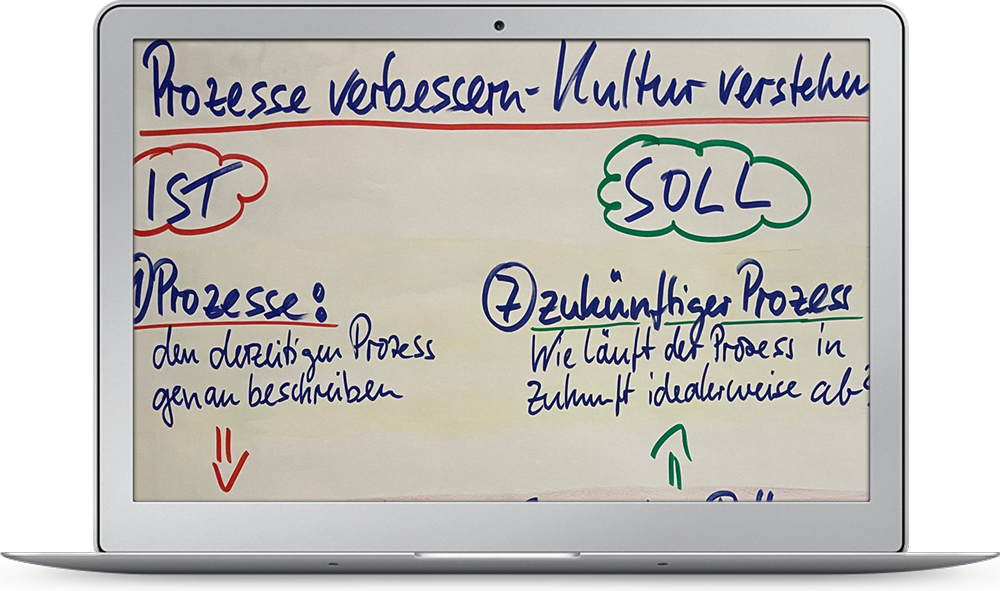 Prozesse verbessern - Kultur verstehen
IST
SOLL
① Prozesse:
den derzeitigen Prozess
genau beschreiben
⑦ zukünftiger Prozess
Wie läuft der Prozess in
Zukunft idealerweise ab?